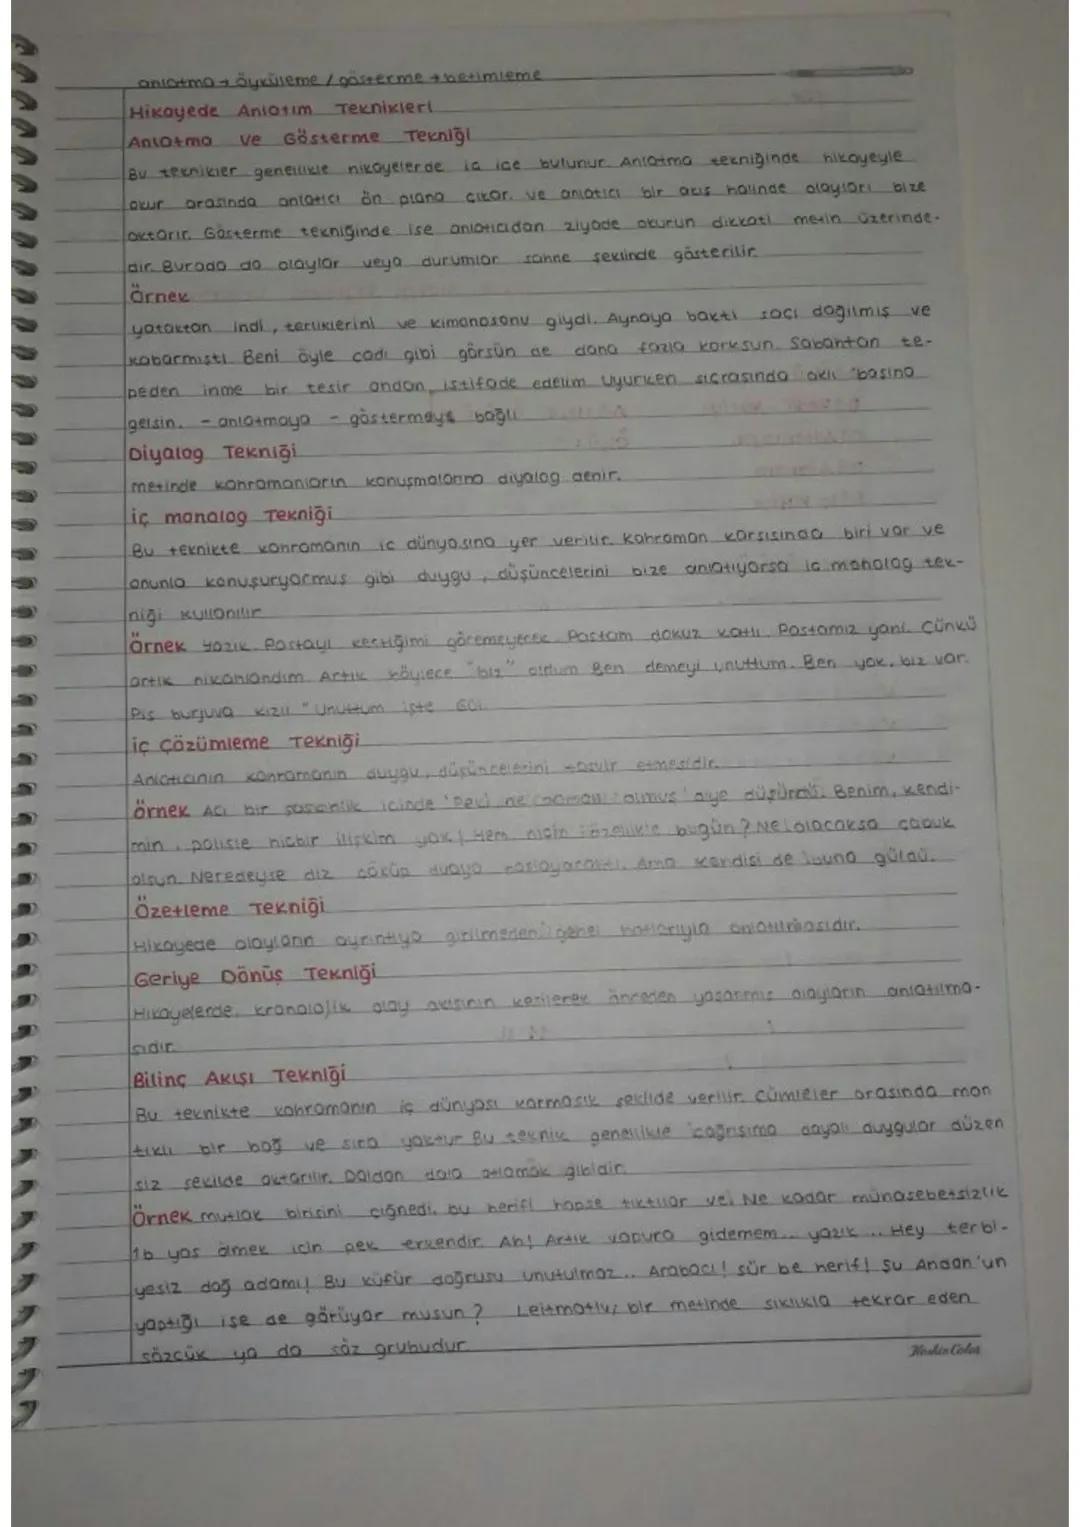 anlatma → öyküleme / gösterme → betimleme
Hikayede Anlatım Teknikleri
Anlatma ve Gösterme Tekniği
Bu teknikler genellikle hikayelerde iç içe bulunur. Anlatma tekniğinde hikayeyle
okur arasında anlatıcı ön plana çıkar. ve anlatıcı bir akış halinde olayları bize
aktarır. Gösterme tekniğinde ise anlatıcıdan ziyade okurun dikkati metin üzerinde-
dir. Burada da olaylar veya durumlar sahne şeklinde gösterilir.
Örnek
yataktan indi, terliklerini ve kimonosonu giydi. Aynaya baktı saçı dağılmış ve
kabarmıştı. Beni öyle cadı gibi görsün de daha fazla korksun. Sabahtan te-
peden inme bir tesir ondan istifade edelim uyurken sıçrasında aklı başına
gelsin. - anlatmaya - göstermeye bağlı
Diyalog Tekniği
metinde kahramanların konuşmalarına diyalog denir.
iç monolog Tekniği
Bu teknikte kahramanın iç dünyasına yer verilir. Kahraman karşısında biri var ve
onunla konuşuryormuş gibi duygu, düşüncelerini bize anlatıyorsa iç monolog tek-
niği kullanılır
Örnek yazık. Pastayı kestiğimi göremeyecek. Pastam dokuz katlı. Pastamız yani. Çünkü
artık nikahlandım. Artık böylece "biz" oldum Ben demeyi unuttum. Ben yok, biz var.
Pis burjuva kızı! "Unuttum işte
iç Çözümleme Tekniği
Anlatıcının kahramanın duygu, düşüncelerini tasvir etmesidir.
örnek Acı bir şaşkınlık içinde 'Peki ne zaman olmuş' diye düşündü. Benim, kendi-
min, polisle hiçbir ilişkim yok! Hem niçin özellikle bugün? Ne olacaksa çabuk
olsun. Neredeyse diz çöküp duaya başlayacaktı. Ama kendisi de buna güldü.
Özetleme Tekniği
Hikayede olayların ayrıntıya girilmeden genel hatlarıyla anlatılmasıdır.
Geriye Dönüş Tekniği
Hikayelerde, kronolojik olay akışının kesilerek önceden yaşanmış olayların anlatılma-
sıdır.
Bilinç Akışı Tekniği
Bu teknikte kahramanın iç dünyası karmaşık şekilde verilir. Cümleler arasında man
tıklı bir bağ ve sıra yoktur Bu teknik genellikle çağrışıma dayalı duygular düzen
siz şekilde aktarılır. Daldan dala atlamak gibidir.
Örnek mutlak birisini çiğnedi. bu herifi hapse tıktılar ve. Ne kadar münasebetsizlik
16 yaş ölmek için pek erkendir. Ah! Artık vapura gidemem... yazık... Hey terbi-
yesiz dağ adamı! Bu küfür doğrusu unutulmaz.. Arabacı! sür be herif! Şu Andon'un
yaptığı işe de görüyor musun? Leitmotiv, bir metinde sıklıkla tekrar eden
sözcük ya da söz grubudur
Keskin Color